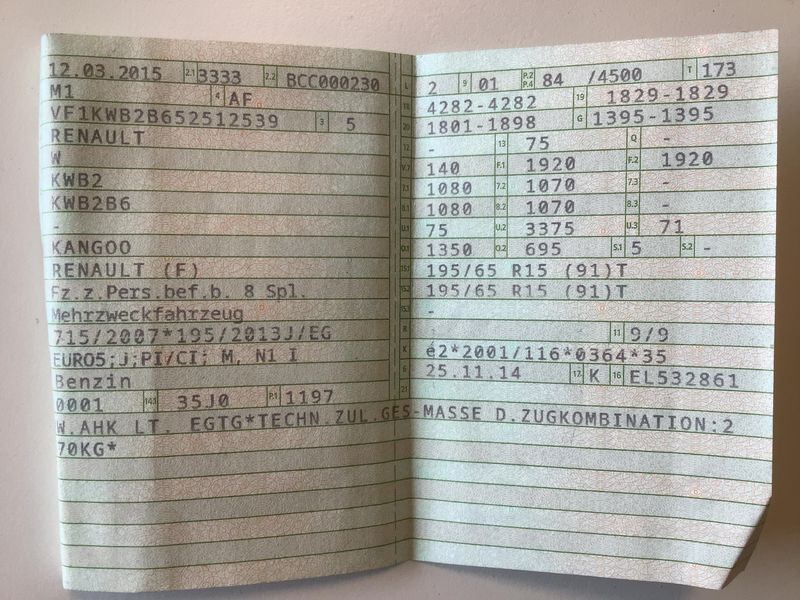 12.03.2015 2.1 3333 2.2 BCC000230
M1 4 AF
VF1KWB2B652512539 3 5
RENAULT
W
KWB2
KWB2B6
-
KANGOO
RENAULT (F)
Fz.z.Pers.bef.b. 8 Spl.
Mehrzweckfahrzeug
715/2007*195/2013J/EG
EURO5;J;PI/CI; M, N1 I
Benzin
0001 14.1 35J0 P.1 1197
W.AHK LT. EGTG*TECHN.ZUL.GES-MASSE D.ZUGKOMBINATION:2
70KG*
L 2 9 01 P.2 P.4 84 /4500 T 173
18 4282-4282 19 1829-1829
20 1801-1898 G 1395-1395
12 - 13 75 Q -
V.7 140 F.1 1920 F.2 1920
7.1 1080 7.2 1070 7.3 -
8.1 1080 8.2 1070 8.3 -
U.1 75 U.2 3375 U.3 71
O.1 1350 O.2 695 S.1 5 S.2 -
15.1 195/65 R15 (91)T
15.2 195/65 R15 (91)T
15.3 -
R 11 9/9
K e2*2001/116*0364*35
6 25.11.14 17 K 16 EL532861
21